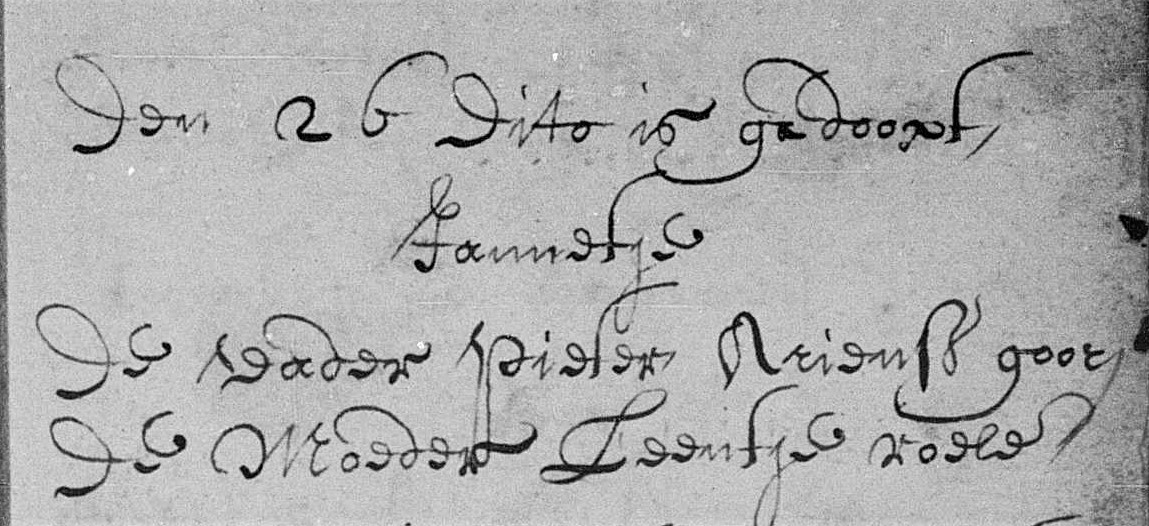 Den 26 Dito is gedoopt
Jannetje
De vader Pieter Ariensz goor
De Moeder Leentje roele